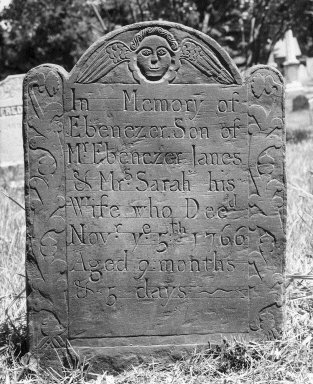 In Memory of
Ebenezer Son of
Mr Ebenezer James
& Mrs Sarah his
Wife who Decd
Novr ye 5th 1766
Aged 9 months
& 5 days